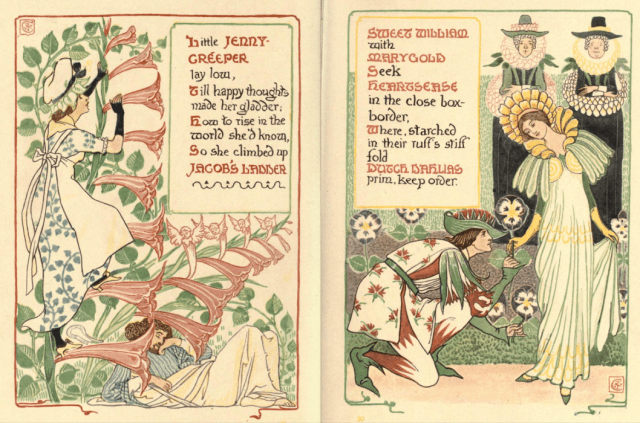 Little JENNY-
CREEPER
lay low,
Till happy thoughts
made her gladder;
How to rise in the
world she'd know,
So she climbed up
JACOB'S LADDER
SWEET WILLIAM
with
MARYGOLD
Seek
HEARTSEASE
in the close box-
border,
Where, starched
in their ruff's stiff
fold
DUTCH DAHLIAS
prim, keep order.